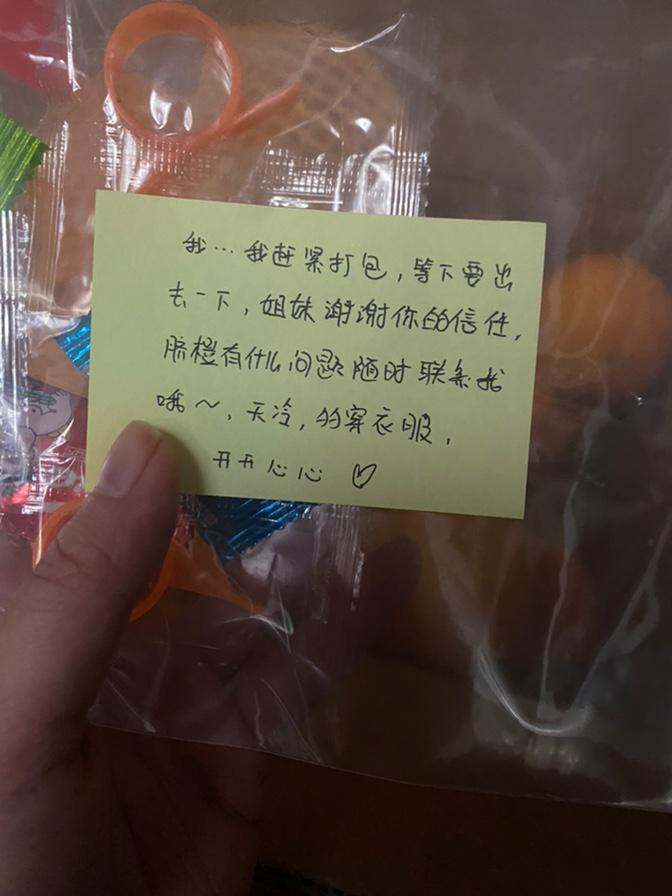 我…我赶紧打包，等下要出
去一下，姐妹谢谢你的信任，
脐橙有什么问题随时联系我
哦～，天冷，的穿衣服，
开开心心 ♡